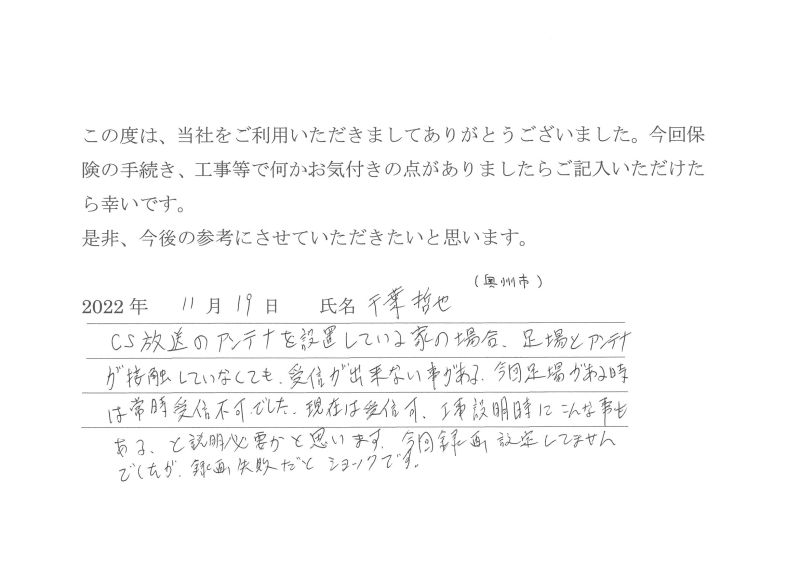 この度は、当社をご利用いただきましてありがとうございました。今回保
険の手続き、工事等で何かお気付きの点がありましたらご記入いただけた
ら幸いです。
是非、今後の参考にさせていただきたいと思います。
(奥州市)
2022年 11月19日 氏名 千葉哲也
CS放送のアンテナを設置している家の場合、足場とアンテナ
が接触していなくても、受信が出来ない事がある。今回足場がある時
は常時受信不可でした。現在は受信可、工事説明時にこんな事も
ある、と説明必要かと思います。今回録画設定してません
でしたが、録画失敗だとショックです。